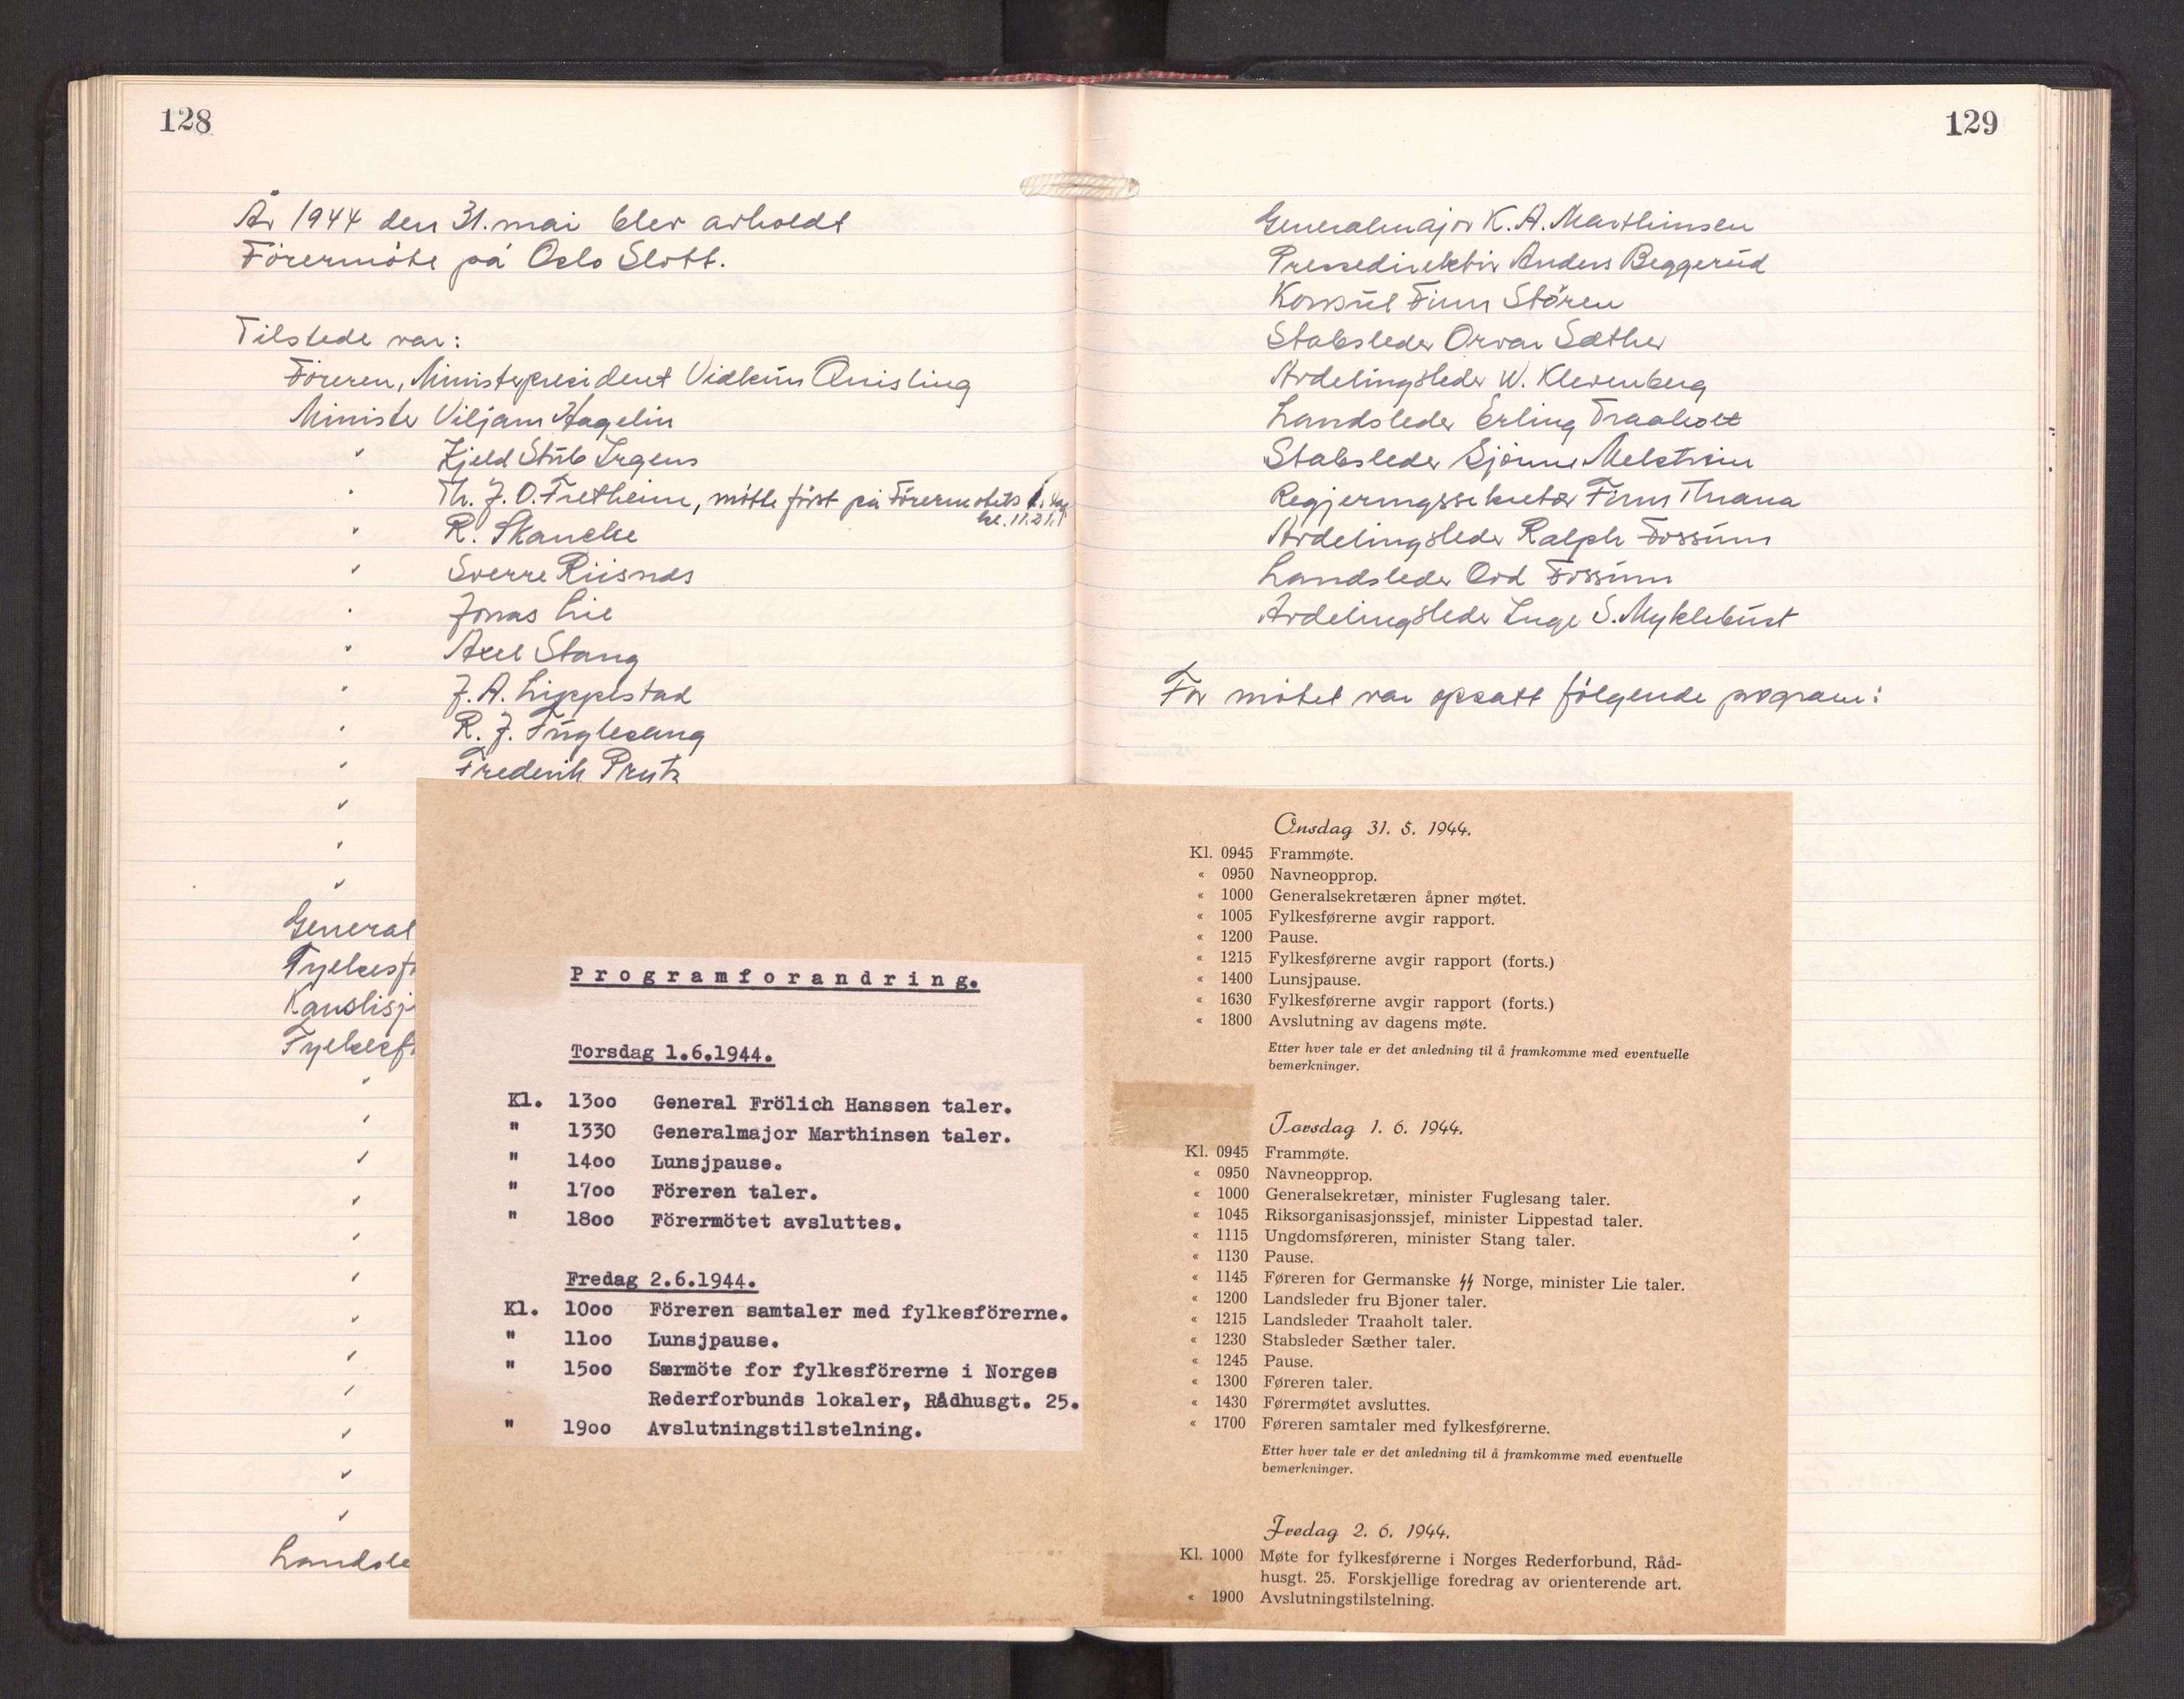 128
År 1944 den 31. mai blev avholdt
Förermöte på Oslo Slott.
Tilstede var:
Föreren, Ministerpresident Vidkun Quisling
Minister Viljam Hagelin
" Kjeld Stub Irgens
" Th. J. O. Fretheim, mötte först på Förermötets 1. dag
kl. 11.21.
" R. Skancke
" Sverre Riisnæs
" Jonas Lie
" Axel Stang
" J. A. Lippestad
" R. J. Fuglesang
" Frederik Prytz
"
"
"
General
Fylkesfö
Kanslisj
Fylkesf
"
"
"
"
"
"
"
"
"
"
"
"
Landsle
Programforandring.
Torsdag 1.6.1944.
Kl. 13oo General Frölich Hanssen taler.
" 1330 Generalmajor Marthinsen taler.
" 14oo Lunsjpause.
" 17oo Föreren taler.
" 18oo Förermötet avsluttes.
Fredag 2.6.1944.
Kl. 10oo Föreren samtaler med fylkesförerne.
" 11oo Lunsjpause.
" 15oo Særmöte for fylkesförerne i Norges
Rederforbunds lokaler, Rådhusgt. 25.
" 19oo Avslutningstilstelning.
129
Generalmajor K. A. Marthinsen
Pressedirektör Anders Beggerud
Konsul Finn Stören
Stabsleder Orvar Sæther
Avdelingsleder W. Klevenberg
Landsleder Erling Traaholt
Stabsleder Sjönne Melström
Regjeringssekretær Finn Thrana
Avdelingsleder Ralph Fossum
Landsleder Odd Fossum
Avdelingsleder Inge S. Myklebust
For mötet var opsatt fölgende program:
Onsdag 31. 5. 1944.
Kl. 0945 Frammøte.
« 0950 Navneopprop.
« 1000 Generalsekretæren åpner møtet.
« 1005 Fylkesførerne avgir rapport.
« 1200 Pause.
« 1215 Fylkesførerne avgir rapport (forts.)
« 1400 Lunsjpause.
« 1630 Fylkesførerne avgir rapport (forts.)
« 1800 Avslutning av dagens møte.
Etter hver tale er det anledning til å framkomme med eventuelle
bemerkninger.
Torsdag 1. 6. 1944.
Kl. 0945 Frammøte.
« 0950 Navneopprop.
« 1000 Generalsekretær, minister Fuglesang taler.
« 1045 Riksorganisasjonssjef, minister Lippestad taler.
« 1115 Ungdomsføreren, minister Stang taler.
« 1130 Pause.
« 1145 Føreren for Germanske ᛋᛋ Norge, minister Lie taler.
« 1200 Landsleder fru Bjoner taler.
« 1215 Landsleder Traaholt taler.
« 1230 Stabsleder Sæther taler.
« 1245 Pause.
« 1300 Føreren taler.
« 1430 Førermøtet avsluttes.
« 1700 Føreren samtaler med fylkesførerne.
Etter hver tale er det anledning til å framkomme med eventuelle
bemerkninger.
Fredag 2. 6. 1944.
Kl. 1000 Møte for fylkesførerne i Norges Rederforbund, Råd-
husgt. 25. Forskjellige foredrag av orienterende art.
« 1900 Avslutningstilstelning.